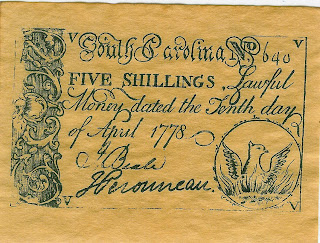 V V
South Carolina No 640
FIVE SHILLINGS, Lawful
Money dated the Tenth day
of April 1778
J Beale
J Peronneau.
V V